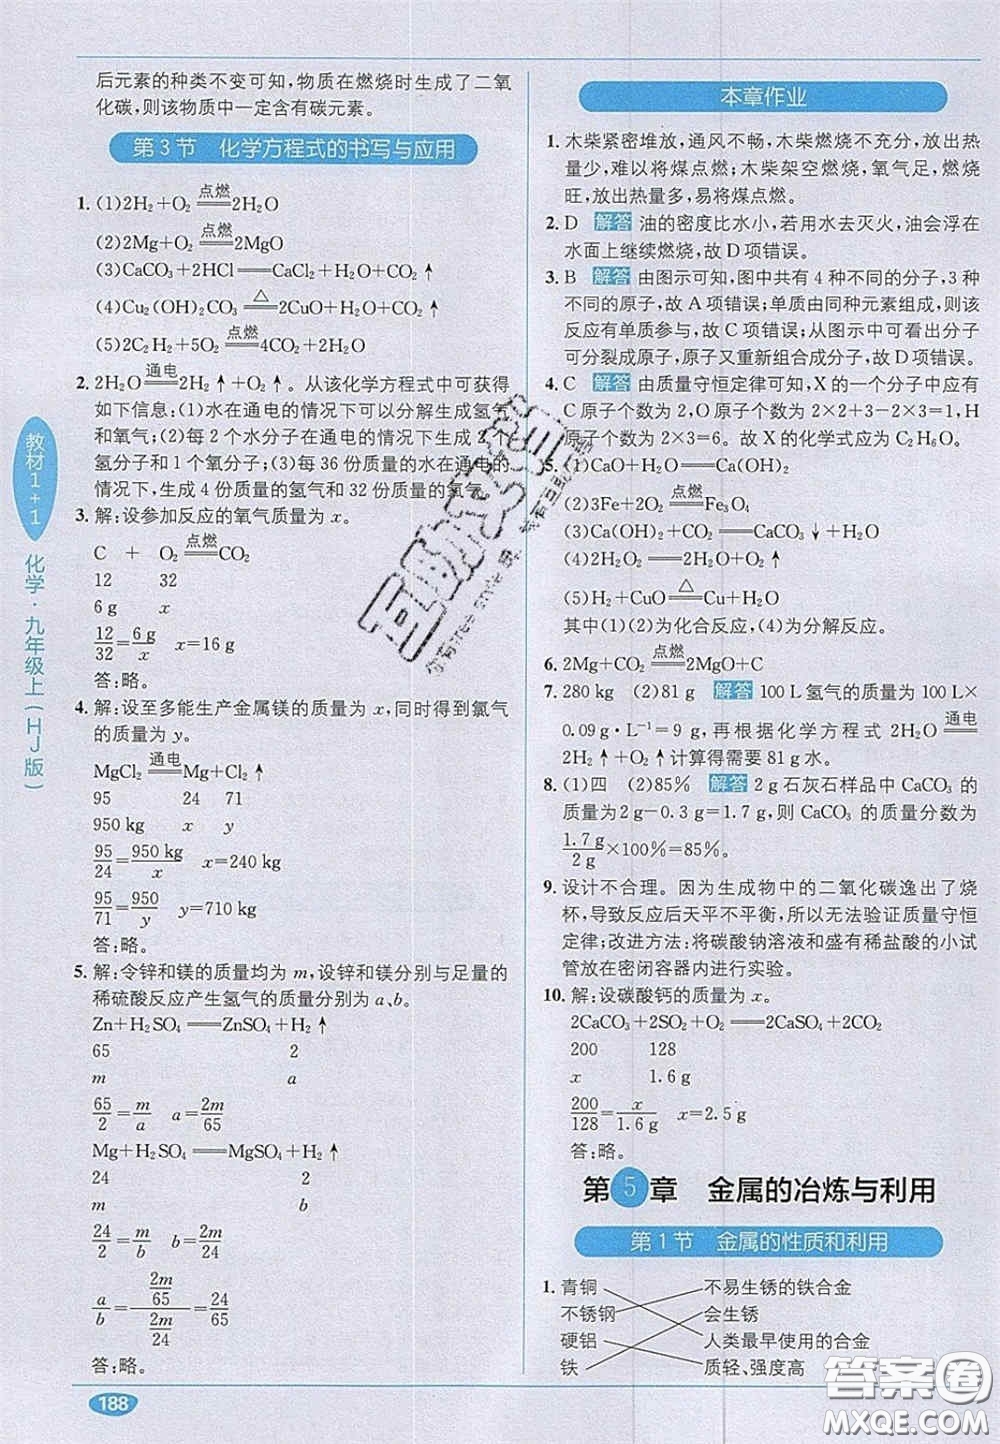 后元素的种类不变可知,物质在燃烧时生成了二氧
化碳,则该物质中一定含有碳元素。
第3节 化学方程式的书写与应用
1. (1)2H₂+O₂ ══点燃══ 2H₂O
(2)2Mg+O₂ ══点燃══ 2MgO
(3)CaCO₃+2HCl ══ CaCl₂+H₂O+CO₂↑
(4)Cu₂(OH)₂CO₃ ══△══ 2CuO+H₂O+CO₂↑
(5)2C₂H₂+5O₂ ══点燃══ 4CO₂+2H₂O
2. 2H₂O ══通电══ 2H₂↑+O₂↑。从该化学方程式中可获得
如下信息:(1)水在通电的情况下可以分解生成氢气
和氧气;(2)每2个水分子在通电的情况下生成2个
氢分子和1个氧分子;(3)每36份质量的水在通电的
情况下,生成4份质量的氢气和32份质量的氧气。
3. 解:设参加反应的氧气质量为x。
C + O₂ ══点燃══ CO₂
12 32
6 g x
12/32=6 g/x x=16 g
答:略。
4. 解:设至多能生产金属镁的质量为x,同时得到氯气
的质量为y。
MgCl₂ ══通电══ Mg+Cl₂↑
95 24 71
950 kg x y
95/24=950 kg/x x=240 kg
95/71=950/y y=710 kg
答:略。
5. 解:令锌和镁的质量均为m,设锌和镁分别与足量的
稀硫酸反应产生氢气的质量分别为a、b。
Zn+H₂SO₄ ══ ZnSO₄+H₂↑
65 2
m a
65/2=m/a a=2m/65
Mg+H₂SO₄ ══ MgSO₄+H₂↑
24 2
m b
24/2=m/b b=2m/24
a/b=(2m/65)/(2m/24)=24/65
答:略。
188
教材1+1
化学·九年级上(HJ版)
本章作业
1. 木柴紧密堆放,通风不畅,木柴燃烧不充分,放出热
量少,难以将煤点燃;木柴架空燃烧,氧气足,燃烧
旺,放出热量多,易将煤点燃。
2. D 解答 油的密度比水小,若用水去灭火,油会浮在
水面上继续燃烧,故D项错误。
3. B 解答 由图示可知,图中共有4种不同的分子,3种
不同的原子,故A项错误;单质由同种元素组成,则该
反应有单质参与,故C项错误;从图示中可看出分子
可分裂成原子,原子又重新组合成分子,故D项错误。
4. C 解答 由质量守恒定律可知,X的一个分子中应有
C原子个数为2,O原子个数为2×2+3-2×2=1,H
原子个数为2×3=6。故X的化学式应为C₂H₆O。
5. (1)CaO+H₂O ══ Ca(OH)₂
(2)3Fe+2O₂ ══点燃══ Fe₃O₄
(3)Ca(OH)₂+CO₂ ══ CaCO₃↓+H₂O
(4)2H₂O₂ ══ 2H₂O+O₂↑
(5)H₂+CuO ══△══ Cu+H₂O
其中(1)(2)为化合反应,(4)为分解反应。
6. 2Mg+CO₂ ══点燃══ 2MgO+C
7. 280 kg (2)81 g 解答 100 L氢气的质量为100 L×
0.09 g·L⁻¹=9 g,再根据化学方程式 2H₂O ══通电══
2H₂↑+O₂↑计算得需要81 g水。
8. (1)四 (2)85% 解答 2 g石灰石样品中CaCO₃的
质量为2 g-0.3 g=1.7 g,则CaCO₃的质量分数为
1.7 g/2 g×100%=85%。
9. 设计不合理。因为生成物中的二氧化碳逸出了烧
杯,导致反应后天平不平衡,所以无法验证质量守恒
定律;改进方法:将碳酸钠溶液和盛有稀盐酸的小试
管放在密闭容器内进行实验。
10. 解:设碳酸钙的质量为x。
2CaCO₃+2SO₂+O₂ ══ 2CaSO₄+2CO₂
200 128
x 1.6 g
200/128=x/1.6 g x=2.5 g
答:略。
第5章 金属的冶炼与利用
第1节 金属的性质和利用
1. 青铜 不易生锈的铁合金
不锈钢 会生锈
硬铝 人类最早使用的合金
铁 质轻、强度高
答案圈
MXQE.COM